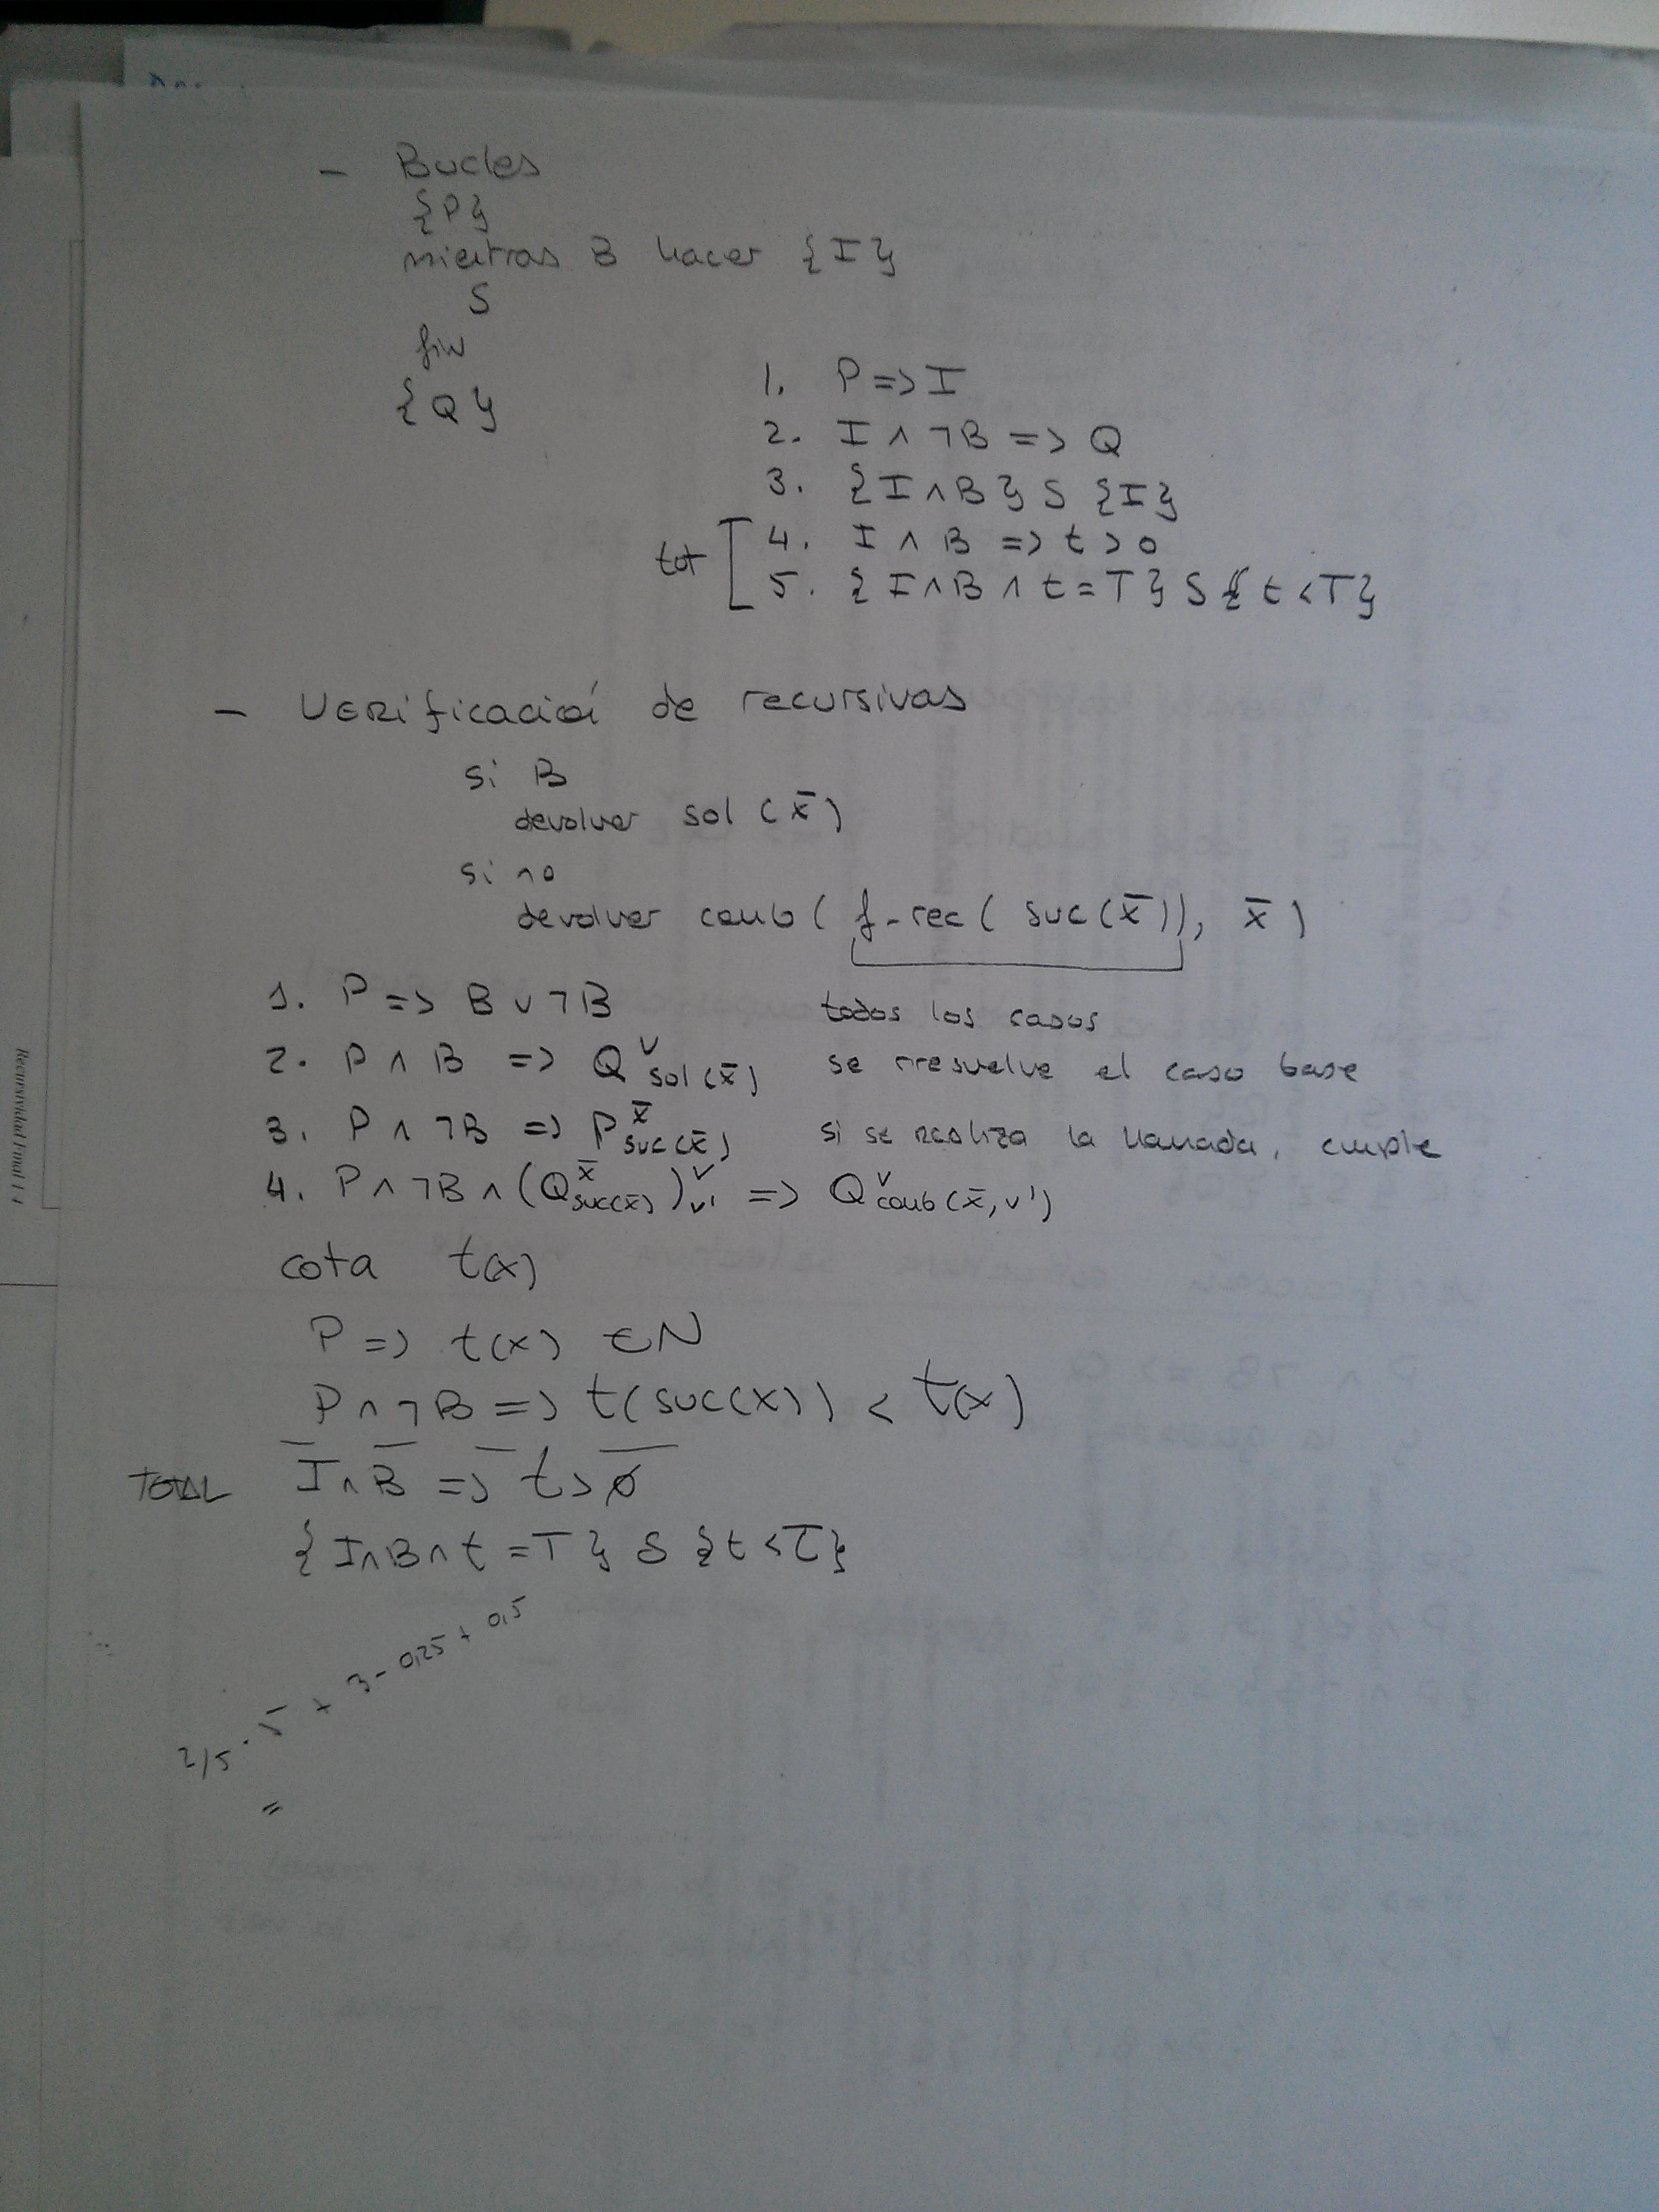 - Bucles
{P}
mientras B hacer {I}
S
fin
{Q}
1. P => I
2. I ∧ ¬B => Q
3. {I ∧ B} S {I}
tot [ 4. I ∧ B => t > 0
5. {I ∧ B ∧ t = T} S {t < T}
- Verificación de recursivas
si B
devolver sol (x̄)
si no
devolver comb ( f-rec ( suc (x̄)), x̄ )
1. P => B ∨ ¬B todos los casos
2. P ∧ B => Q^v_sol(x̄) se rresuelve el caso base
3. P ∧ ¬B => P^x̄_suc(x̄) si se realiza la llamada, cumple
4. P ∧ ¬B ∧ (Q^x̄_suc(x̄))^v_v' => Q^v_comb(x̄, v')
cota t(x)
P => t(x) ∈ N
P ∧ ¬B => t(suc(x)) < t(x)
TOTAL I ∧ B => t > 0
{I ∧ B ∧ t = T} S {t < T}
2/5 · 5 + 3 - 0,25 + 0,5
=
Recursividad Final 1.4